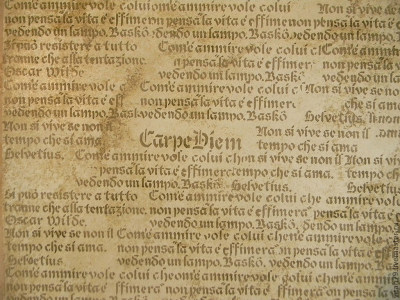 Com'è ammirevole colui non pensa la vita è effimera Non si vive se
vedendo un lampo. Baskō vedendo un lampo. Baskō tempo che si
Si può resistere a tutto Com'è ammirevole colui c Com'è ammirevole
tranne che alla tentazione. a pensa la vita è effimer non pensa la vita è
Oscar Wilde vedendo un lampo. Baskō vedendo un lampo
Com'è ammirevole colui c Com'è ammirevole colui c Non si vive se non il
non pensa la vita è effimera non pensa la vita è effimera che si ama
vedendo un lampo. Bask vedendo un lampo. Baskō Helvetius.
Non si vive se non il Carpe Diem Non si vive se non il
tempo che si ama. tempo che si ama
Helvetius. Com'è ammirevole colui che non si vive se non il
non pensa la vita è effimera tempo che si ama.
vedendo un lampo. Baskō Helvetius.
Si può resistere a tutto Com'è ammirevole colui che ammirevole
tranne che alla tentazione, non pensa la vita è effimera pensa la vita è
Oscar Wilde. vedendo un lampo. Baskō, dendo un lampo.
Non si vive se non il Com'è ammirevole colui che ammirevole col
tempo che si ama. non pensa la vita è effimera non pensa la vita è
Helvetius. vedendo un lampo. Baskō. vedendo un lampo.
Com'è ammirevole colui che ammirevole colui che ammirevole colui
non pensa la vita è effimera pensa la vita è effimera non pensa la vita è effi